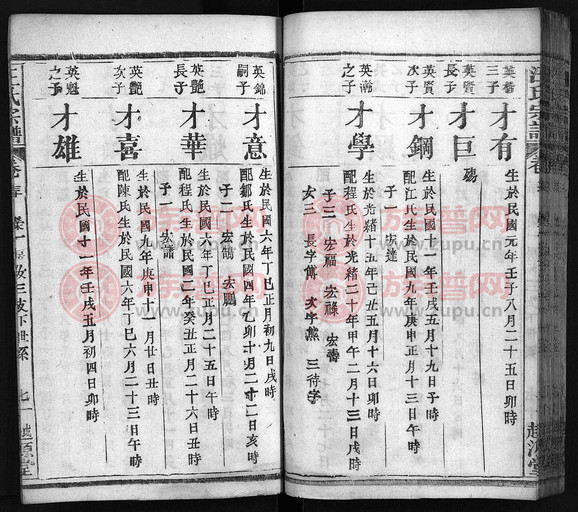 英
三子
才有
生於民國元年壬子八月二十五日卯時
英賢
長子
才巨
英賢
次子
才鋼
生於民國十一年壬戌五月十九日子時
配江氏生於民國九年庚申正月十三日午時
子一 宏達
英瀚
之子
才學
生於光緒十五年己丑五月十六日卯時
配程氏生於光緒二十年甲午二月十三日戌時
子三 宏福 宏祿 宏壽
女三 長字傅 次字熊 三待字
越源堂
英錦
嗣子
才意
生於民國六年丁巳正月初九日戌時
配鄒氏生於民國四年乙卯十月二十二日亥時
子二 宏鵬
英艷
長子
才華
生於民國六年丁巳正月二十五日午時
配程氏生於民國二年癸丑正月二十六日丑時
子一
英艷
次子
才喜
生於民國九年庚申十一月廿日丑時
配陳氏生於民國六年丁巳六月二十三日午時
英魁
之子
才雄
生於民國十一年壬戌五月初四日卯時
汪氏宗譜
三支下世系
七一
越源堂
族譜网
www.zupu.cn
族譜网
www.zupu.cn